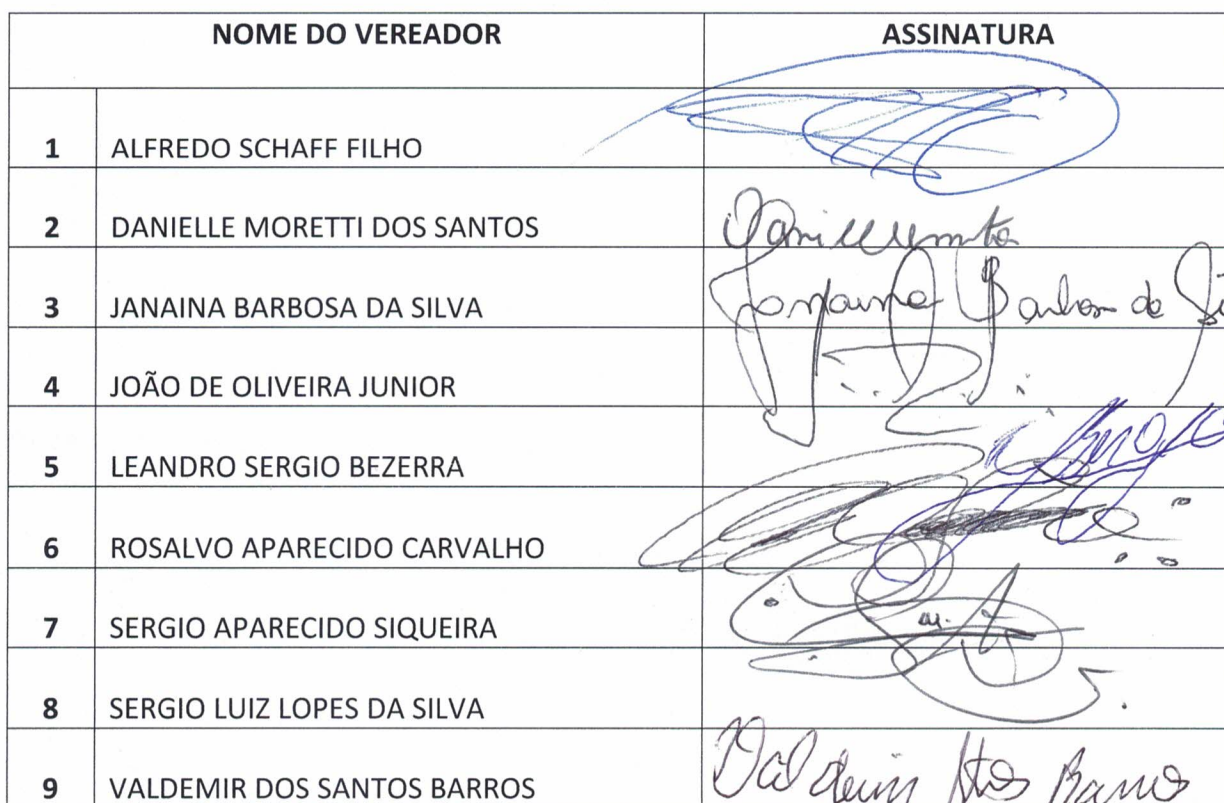 NOME DO VEREADOR ASSINATURA
1 ALFREDO SCHAFF FILHO
2 DANIELLE MORETTI DOS SANTOS
3 JANAINA BARBOSA DA SILVA Janaina Barbosa da
4 JOÃO DE OLIVEIRA JUNIOR
5 LEANDRO SERGIO BEZERRA
6 ROSALVO APARECIDO CARVALHO
7 SERGIO APARECIDO SIQUEIRA
8 SERGIO LUIZ LOPES DA SILVA
9 VALDEMIR DOS SANTOS BARROS Valdemir Stos Barros